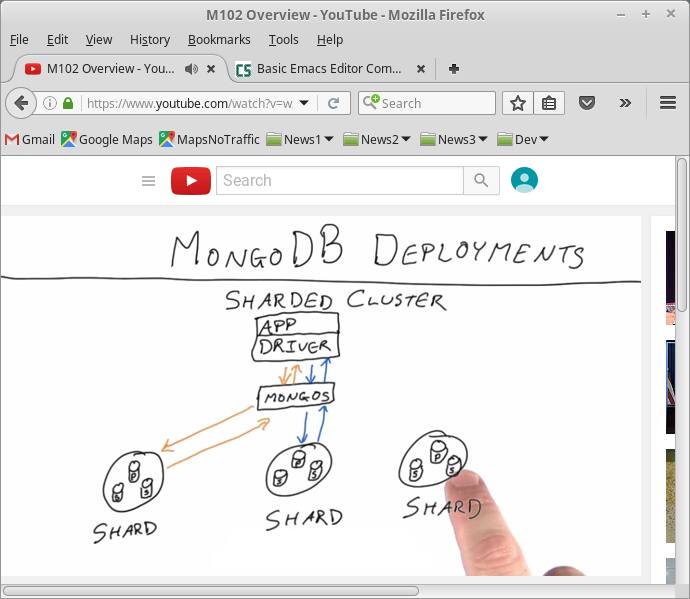 M102 Overview - YouTube - Mozilla Firefox
File Edit View History Bookmarks Tools Help
M102 Overview - You... Basic Emacs Editor Com...
https://www.youtube.com/watch?v=w Search
Gmail Google Maps MapsNoTraffic News1 News2 News3 Dev
Search
MONGODB DEPLOYMENTS
SHARDED CLUSTER
APP
DRIVER
MONGOS
P P P
S S S S S S
SHARD SHARD SHARD